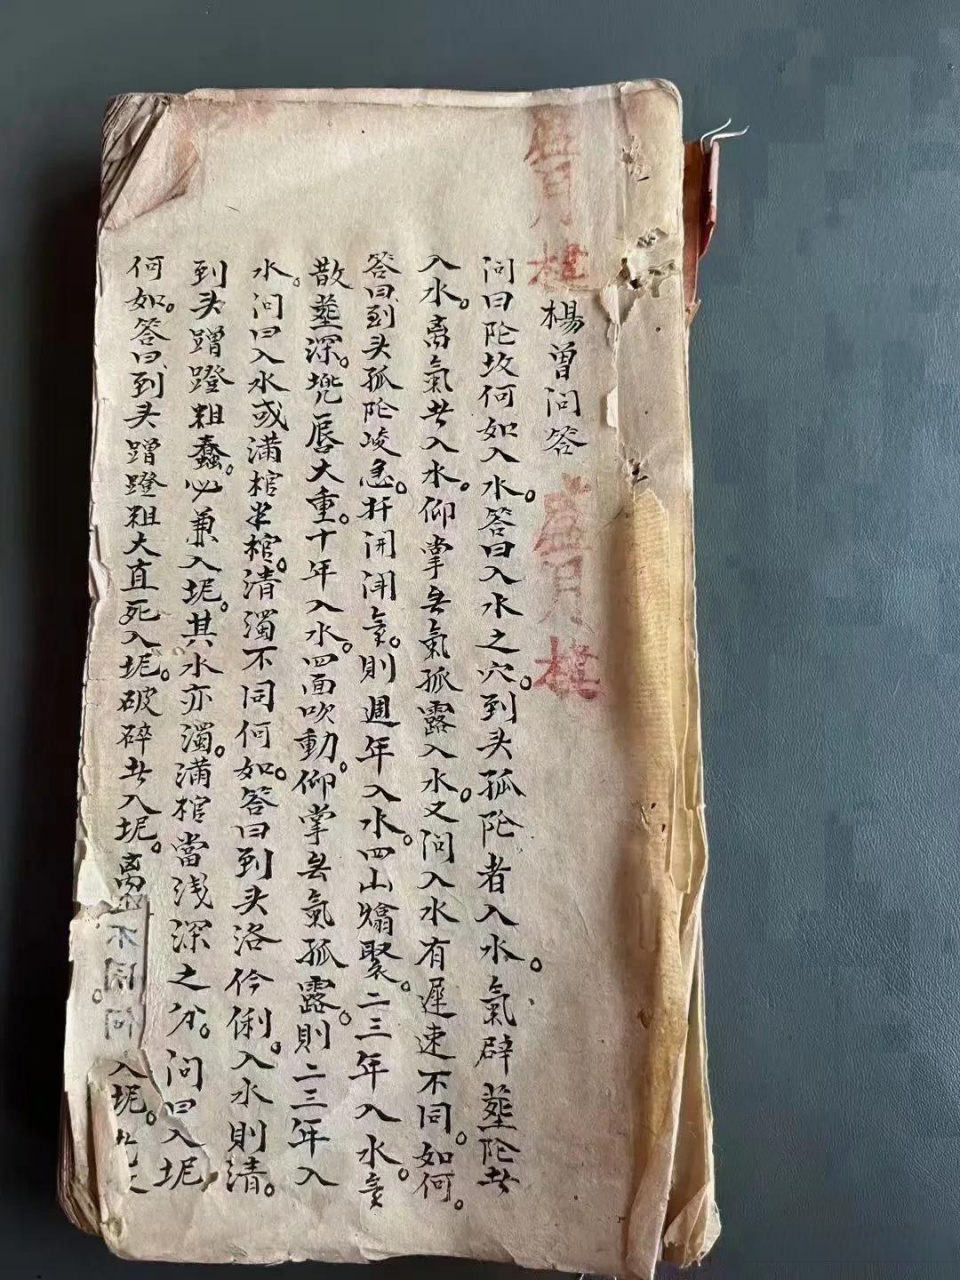 楊曽问答
问曰陀坟何如入水。答曰入水之穴。到头孤陀者入水。氣辟塟陀北
入水。离氣北入水。仰掌无氣孤露入水。又问入水有遲速不同。如何。
答曰到头孤陀峻急。扞闲氣。則週年入水。四山爓聚。二三年入水。
散塟深。唇大重。十年入水。四面吹動。仰掌无氣孤露。則二三年入
水。问曰入水或满棺半棺。清濁不同何如。答曰到头洛伶俐。入水則清。
到头蹭蹬粗蠢。必兼入坭。其水亦濁。满棺當浅深之分。问曰入坭
何如。答曰到头蹭蹬粗大直死入坭。破碎北入坭。离入坭。
盛月楼
盛月楼